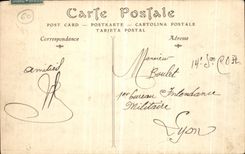 60
Carte Postale
POST CARD — POSTKARTE — CARTOLINA POSTALE
TARJETA POSTAL
Correspondance
Adresse
amitié
Monsieur
Boulet
1er bureau Intendance
Militaire
Lyon